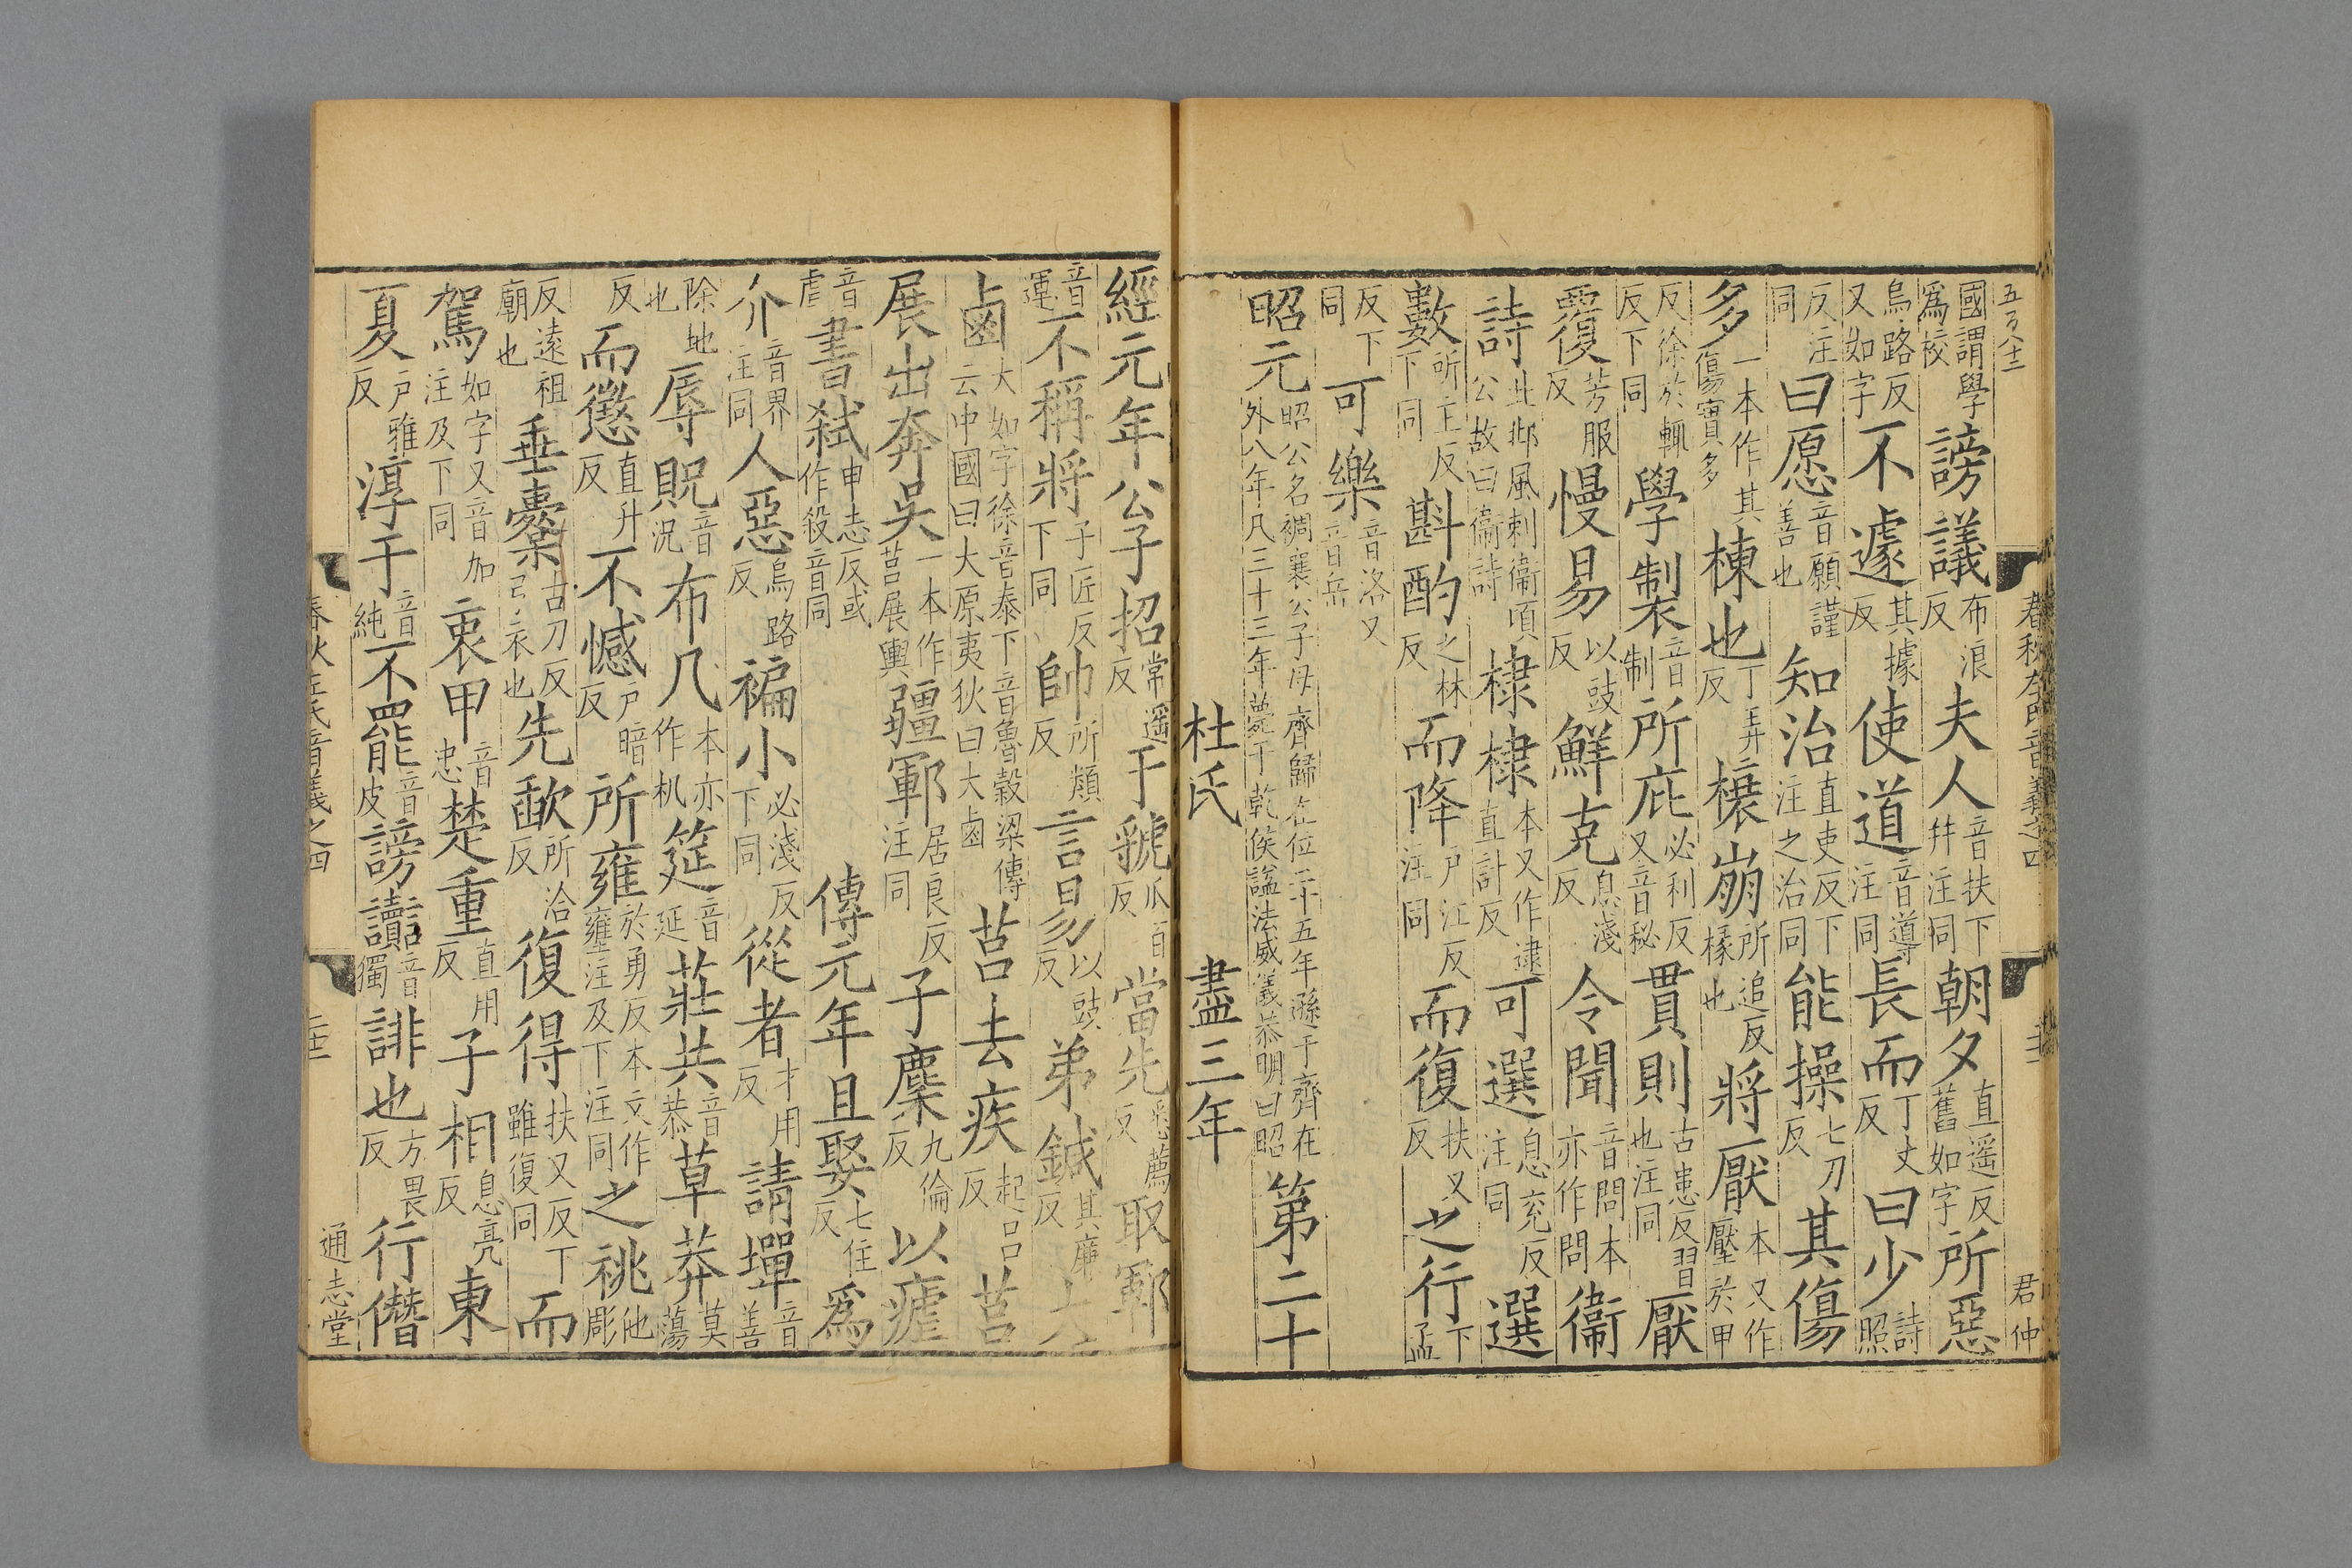 五百八十三
春秋左氏音義之四
君仲
國謂學爲校謗議布浪反夫人音扶下并注同朝夕直遥反舊如字所惡
烏路反又如字不遽其據反使道音導注同長而丁丈反曰少詩照
反注同曰愿音願謹善也知治直吏反下注之治同能操七刀反其傷
多一本作其傷實多棟也丁弄反榱崩所追反椽也將厭本又作壓於甲
反徐於輒反下同學製音制所庇必利反又音秘貫則古患反習也注同厭
覆芳服反慢易以豉反鮮克息淺反令聞音問本亦作問衞
詩此邶風刺衞頃公故曰衞詩棣棣本又作逮直計反可選息兖反注同選
數所主反下同斟酌之林反而降户江反注同而復扶又反之行下孟
反下同可樂音洛又音岳
昭元昭公名裯襄公子母齊歸在位二十五年遜于齊在外八年凡三十三年薨于乾侯謚法威儀恭明曰昭第二十
杜氏盡三年
經元年公子招常遥反于虢瓜百反當先悉薦反取鄆
音運不稱將子匠反下同帥所類反言易以豉反弟鍼其廉反大
鹵大如字徐音泰下音魯穀梁傳云中國曰大原夷狄曰大鹵莒去疾起吕反莒
展出奔吳一本作莒展輿疆鄆居良反注同子麇九倫反以瘧
音虐書弑申志反或作殺音同傳元年且娶七住反爲
介音界注同人惡烏路反褊小必淺反下同從者才用反請墠音善
除地也辱貺音況布几本亦作机筵音延莊共音恭草莽莫蕩
反而懲直升反不憾户暗反所雍於勇反本又作壅注及下注同之祧他彫
反遠祖廟也垂櫜古刀反弓衣也先歃所洽反復得扶又反下雖復同而
駕如字又音加注及下同衷甲音忠楚重直用反子相息亮反東
夏户雅反淳于音純不罷音皮謗讟音獨誹也方畏反行僭
春秋左氏音義之四
通志堂